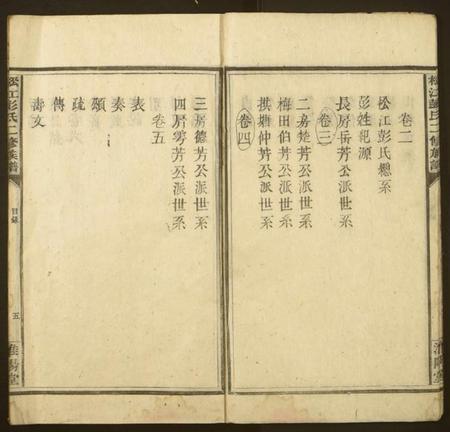 松江彭氏二修族譜
卷二
松江彭氏總系
彭姓起源
卷三
長房岳芳公派世系
二房楚芳公派世系
梅田伯芳公派世系
棋塘仲芳公派世系
卷四
三房德芳公派世系
四房雩芳公派世系
卷五
表
奏
頌
疏
傳
壽文
松江彭氏二修族譜
目錄
五
淮陽堂